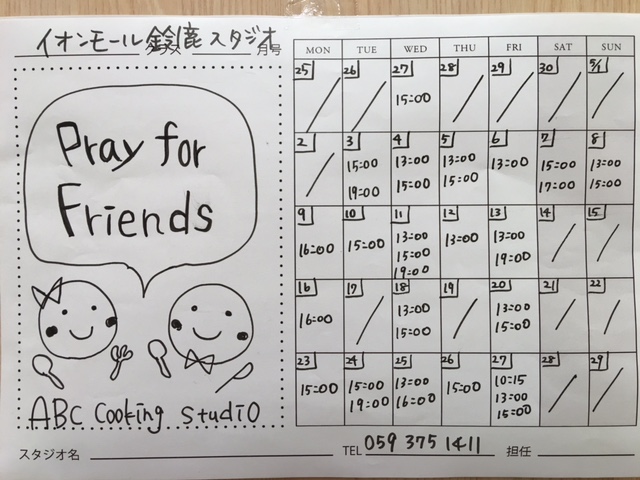 イオンモール鈴鹿スタジオ
クラス 月号
Pray for
Friends
ABC Cooking Studio
MON TUE WED THU FRI SAT SUN
25 26 27 28 29 30 5/1
15:00
2 3 4 5 6 7 8
15:00 13:00 13:00 13:00 15:00 13:00
19:00 15:00 15:00 17:00 15:00
9 10 11 12 13 14 15
16:00 15:00 13:00 13:00 13:00
15:00 19:00
19:00
16 17 18 19 20 21 22
16:00 13:00 13:00
15:00 15:00
23 24 25 26 27 28 29
15:00 15:00 13:00 15:00 10:15
19:00 16:00 13:00
15:00
スタジオ名 TEL 059 375 1411 担任